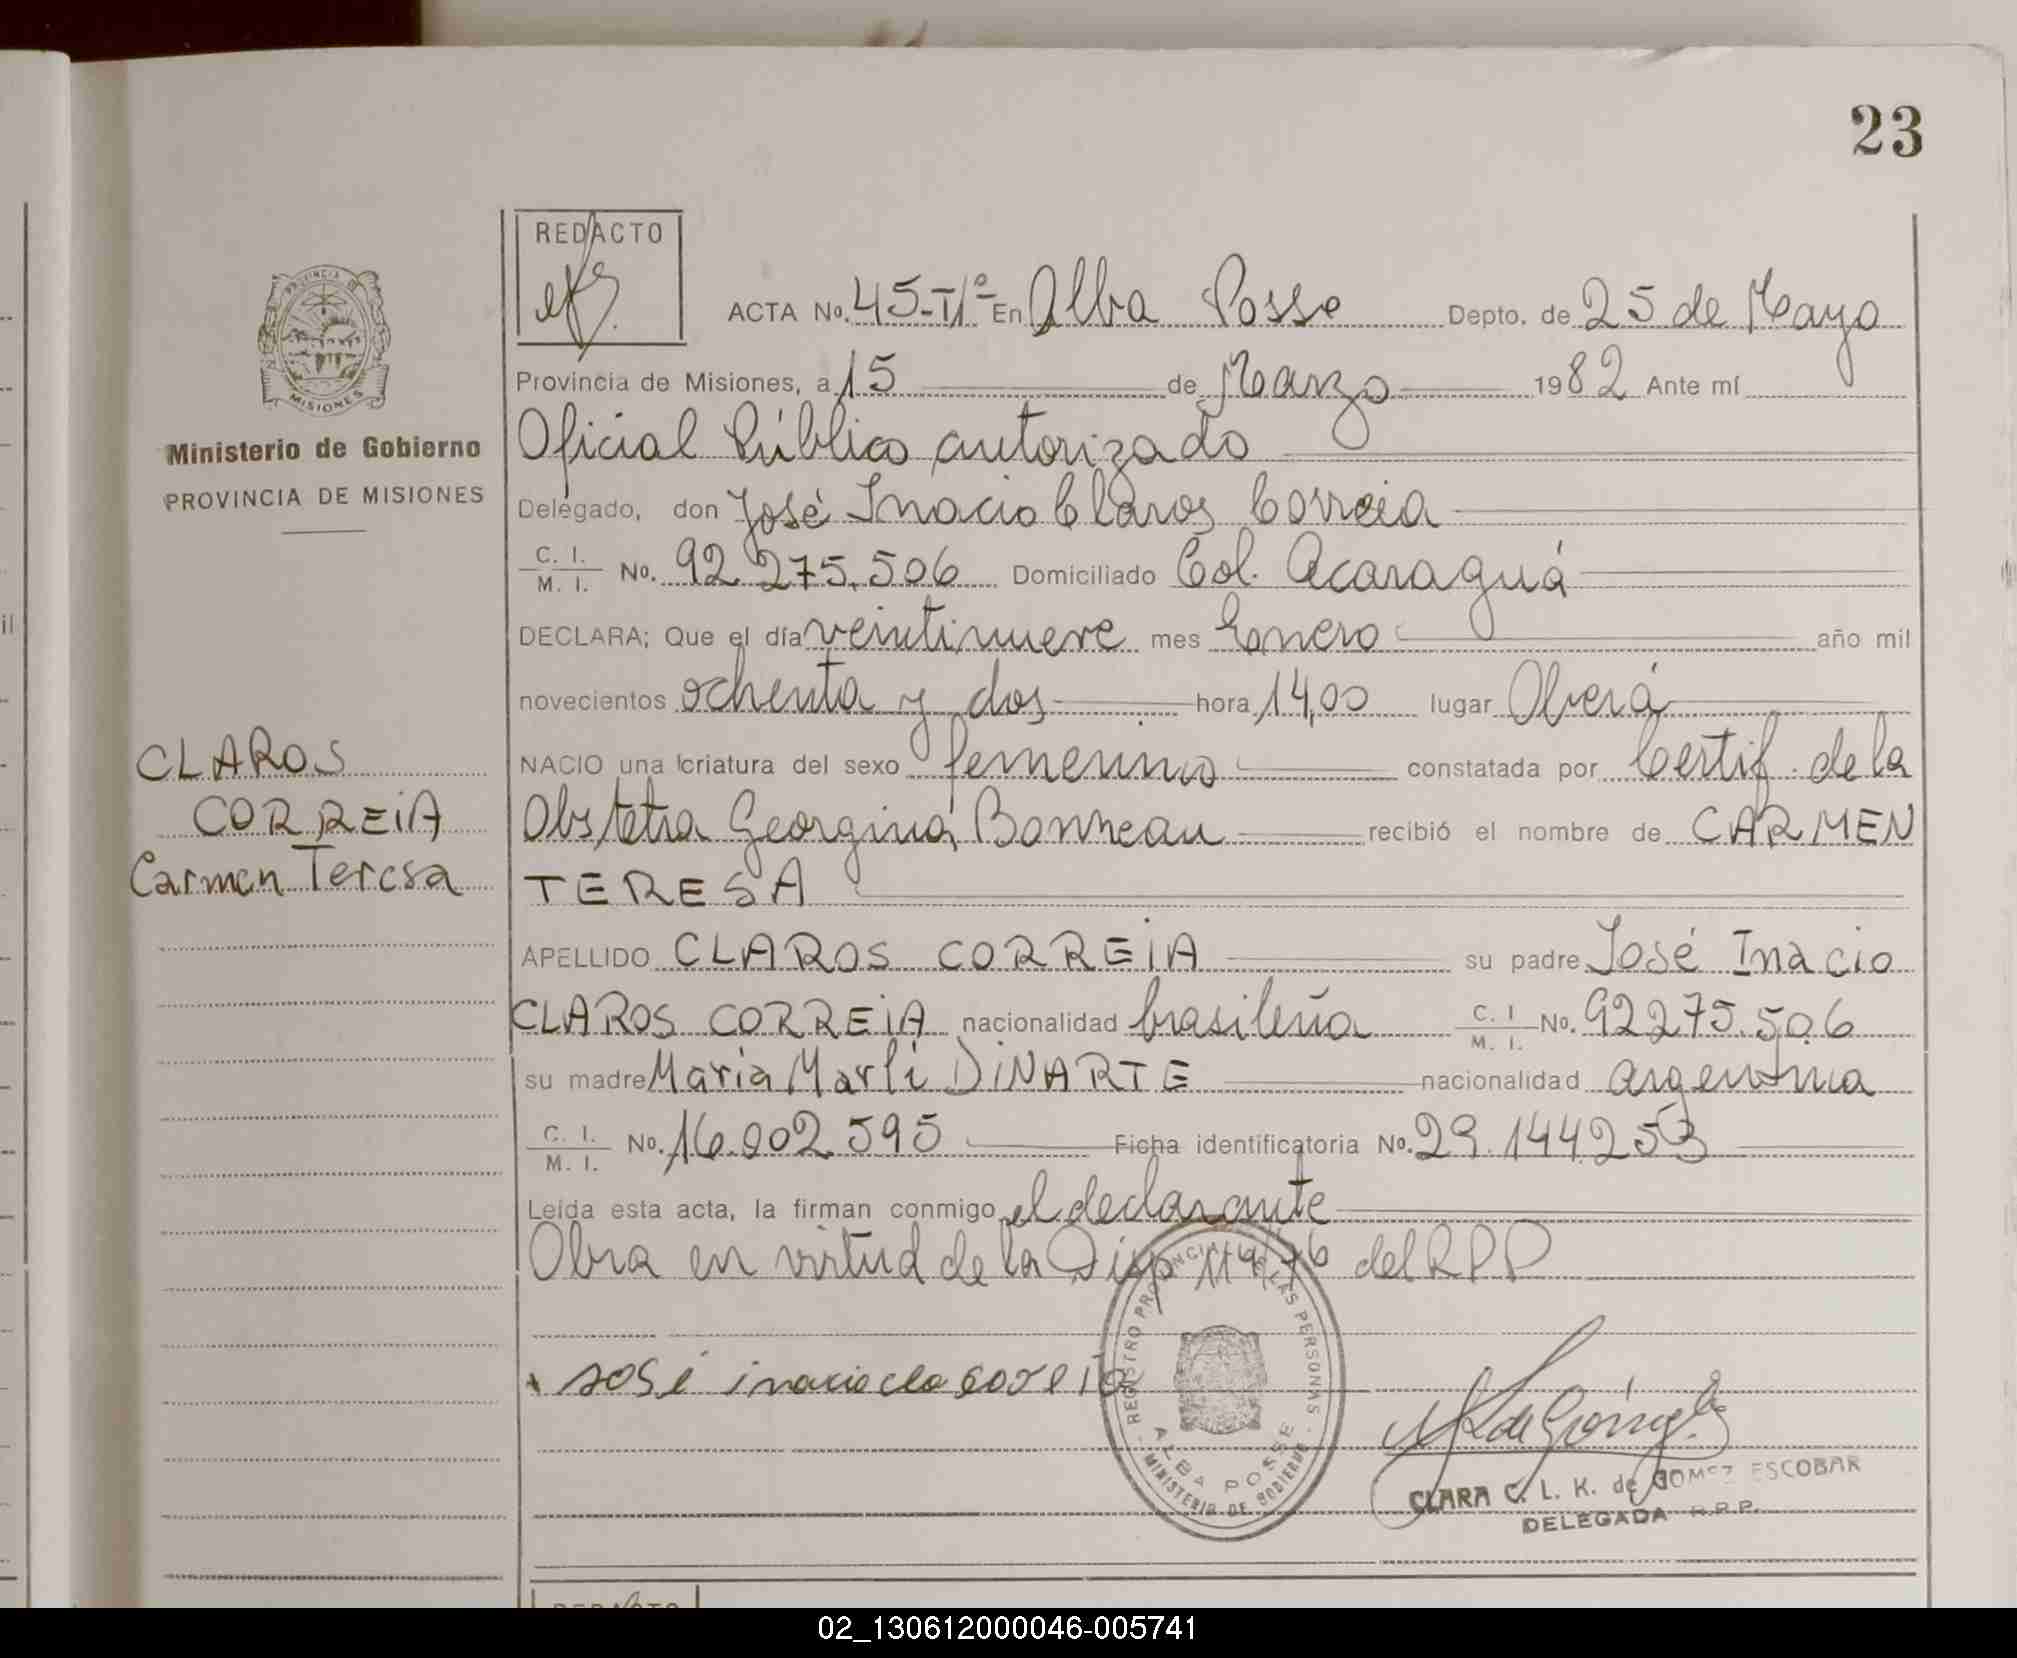 23
REDACTO
ACTA No. 45-Tº En Alba Posse Depto. de 25 de Mayo
Provincia de Misiones, a 15 de Marzo 1982 Ante mí
Oficial Público autorizado
Delegado, don José Inacio Claros Correia
C. I. / M. I. No. 92.275.506 Domiciliado Col. Acaraguá
DECLARA; Que el día veintinueve mes Enero año mil
novecientos ochenta y dos hora 14,00 lugar Oberá
NACIO una criatura del sexo femenino constatada por Certif. de la
Obstetra Georgina Bonneau recibió el nombre de CARMEN
TERESA
APELLIDO CLAROS CORREIA su padre José Inacio
CLAROS CORREIA nacionalidad brasileña C. I / M. I. No. 92275.506
su madre Maria Marli DINARTE nacionalidad argentina
C. I. / M. I. No. 16.002.595 Ficha identificatoria No. 29.144.253
Leída esta acta, la firman conmigo el declarante
Obra en virtud de la Disp 119/76 del RPP
José inacio cla correia
PROVINCIA
MISIONES
Ministerio de Gobierno
PROVINCIA DE MISIONES
CLAROS
CORREIA
Carmen Teresa
REGISTRO PROVINCIAL DE LAS PERSONAS
ALBA POSSE
MINISTERIO DE GOBIERNO
CLARA C. L. K. de GOMEZ ESCOBAR
DELEGADA R.P.P.
REDACTO
02_130612000046-005741